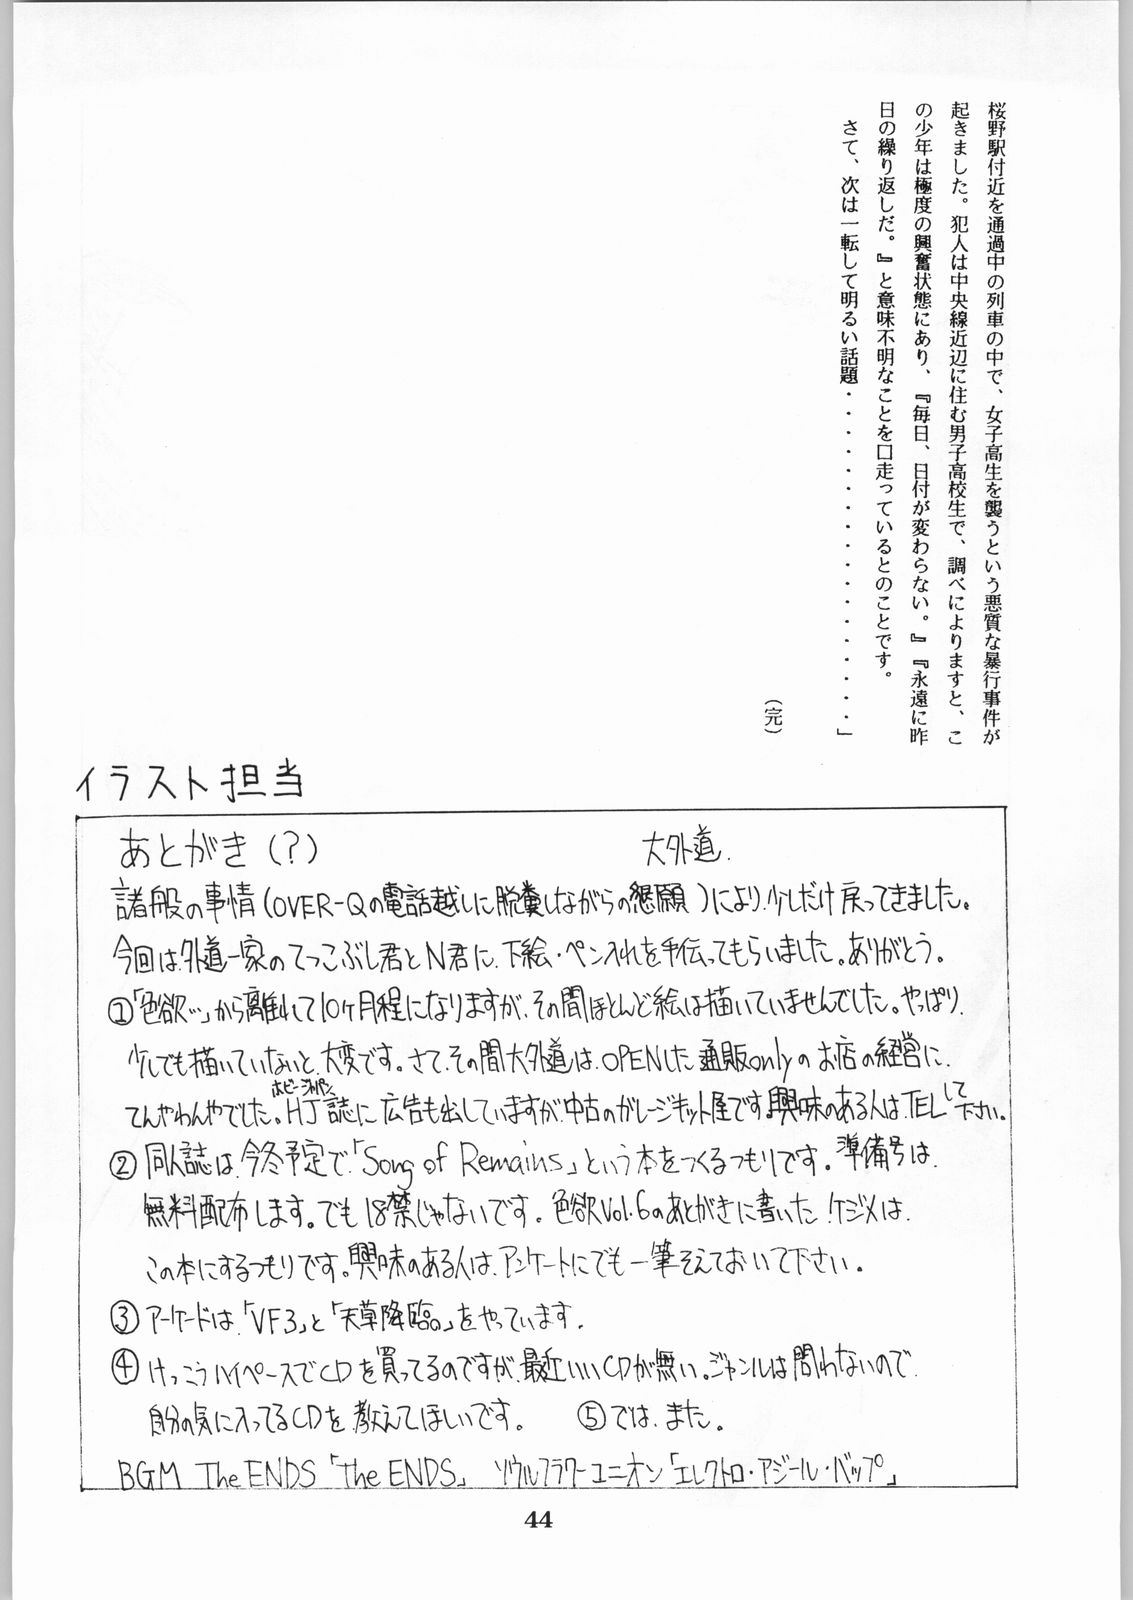 桜野駅付近を通過中の列車の中で、女子高生を襲うという悪質な暴行事件が
起きました。犯人は中央線近辺に住む男子高校生で、調べによりますと、こ
の少年は極度の興奮状態にあり、『毎日、日付が変わらない。』『永遠に昨
日の繰り返しだ。』と意味不明なことを口走っているとのことです。
さて、次は一転して明るい話題・・・・・・・・・・・・・・・・・・」
（完）
イラスト担当
あとがき（?） 大外道.
諸般の事情(OVER-Qの電話越しに脱糞しながらの懇願)により、少しだけ戻ってきました。
今回は、外道一家のてっこぶし君とN君に、下絵・ペン入れを手伝ってもらいました。ありがとう。
①「色欲…」から離れて10ヶ月程になりますが、その間ほとんど絵は描いていませんでした。やっぱり、
少しでも描いていないと、大変です。さて、その間大外道は、OPENした通販onlyのお店の経営に、
てんやわんやでした。HJ誌ホビージャパンに広告も出していますが、中古のガレージキット屋です。興味のある人は、TELして下さい。
②同人誌は、今冬予定で、「Song of Remains」という本をつくるつもりです。準備号は、
無料配布します。でも18禁じゃないです。色欲Vol.6のあとがきに書いた!ケジメは、
この本にするつもりです。興味のある人は、アンケートにでも一筆そえておいて下さい。
③アーケードは、「VF3」と「天草降臨。」をやっています.
④けっこうハイペースでCDを買ってるのですが、最近いいCDが無い。ジャンルは問わないので、
自分の気に入ってるCDを、教えてほしいです。 ⑤では、また。
BGM The ENDS「the ENDS」 ソウルフラワーユニオン「エレクトロ・アジール・バップ」
44